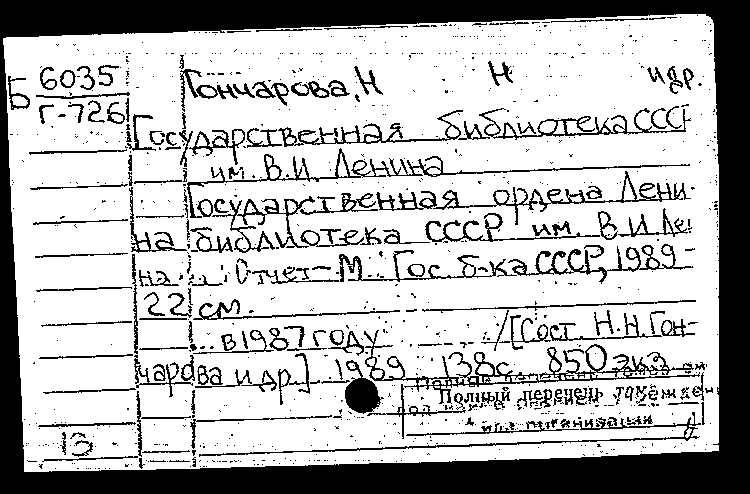 Б 6035
Г-726
Гончарова, Н Н идр.
Государственная библиотека СССР
им. В.И. Ленина
Государственная ордена Лени-
на библиотека СССР им. В И Ле
на... : Отчет – М : Гос. б-ка СССР, 1989 –
22 см.
... в 1987 году /[Сост. Н.Н. Гон-
чарова и др.] 1989 138с 850 экз
Полный перечень томов см
Полный перечень
под
организации
13